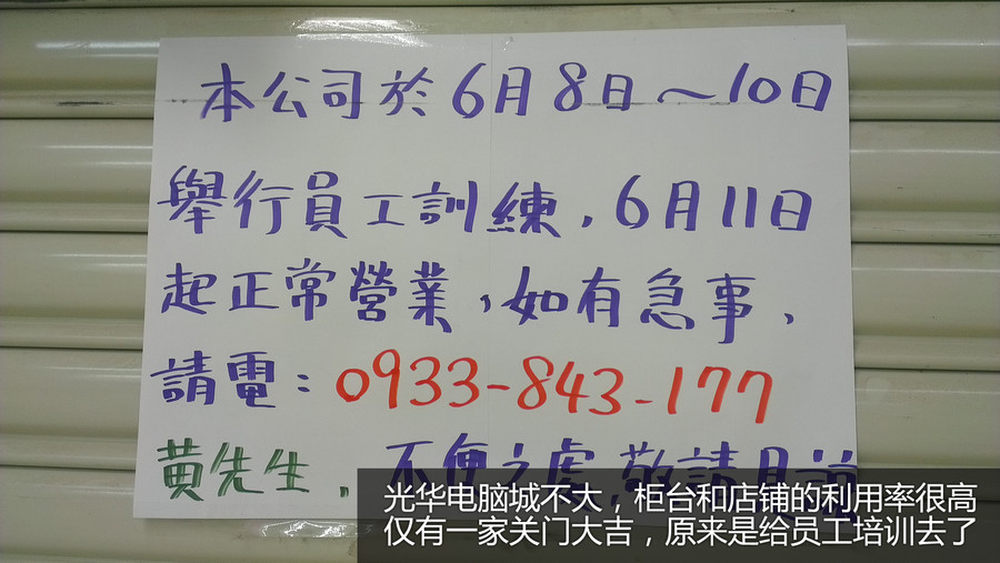 本公司於6月8日~10日
舉行員工訓練,6月11日
起正常營業,如有急事,
請電:0933-843-177
黄先生,不便之處,敬請見諒
光华电脑城不大,柜台和店铺的利用率很高
仅有一家关门大吉,原来是给员工培训去了